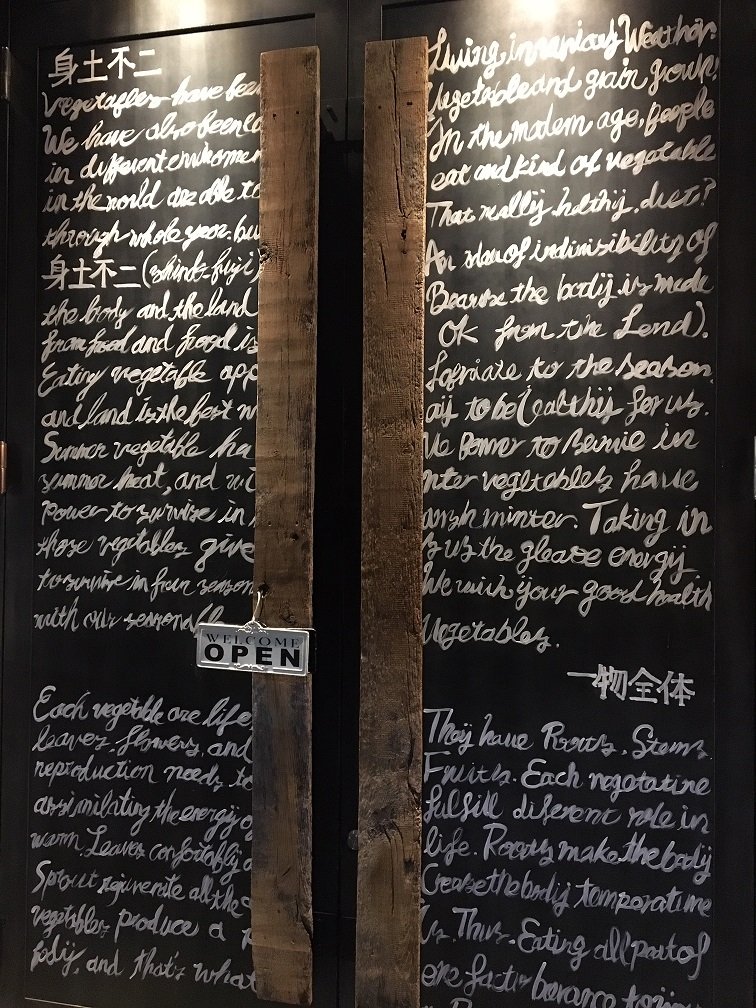 身土不二
Vegetables have been Living in various Weather.
We have also been ea Vegetable and grain grown!
in different enviromen In the modern age, people
in the world are able to eat and kind of vegetable
through whole year. bu That really halthij. diet?
身土不二 (shindo-fuji) An idea of indivisibility of
the body and the land Bearise the bodij is made
from food and food is OK from the Lend).
Eating vegetable app Lofriate to the season
and land is the best w aij to be Healthij for us.
Summer vegetable ha Ve Power to survive in
summer heat, and wi nter vegetables have
Power to survise in arsh minter. Taking in
those vegetables give s us the gleave energij
to survise in four season We wish your good health
with our seasonal Vegetables.
WELCOME
OPEN
一物全体
Each vegetable are life Theij have Roots. Stems.
leaves. flowers, and Fruits. Each vegetative
reproduction needs to fulfill diferent role in
assimilating the energy o life. Roots make the bodij
warm. Leaves confortablij Crease the bodij temperature
Sprout rejuvenate all the Us. Thus. Eating all part of
vegetables produce a
bodij, and that's what